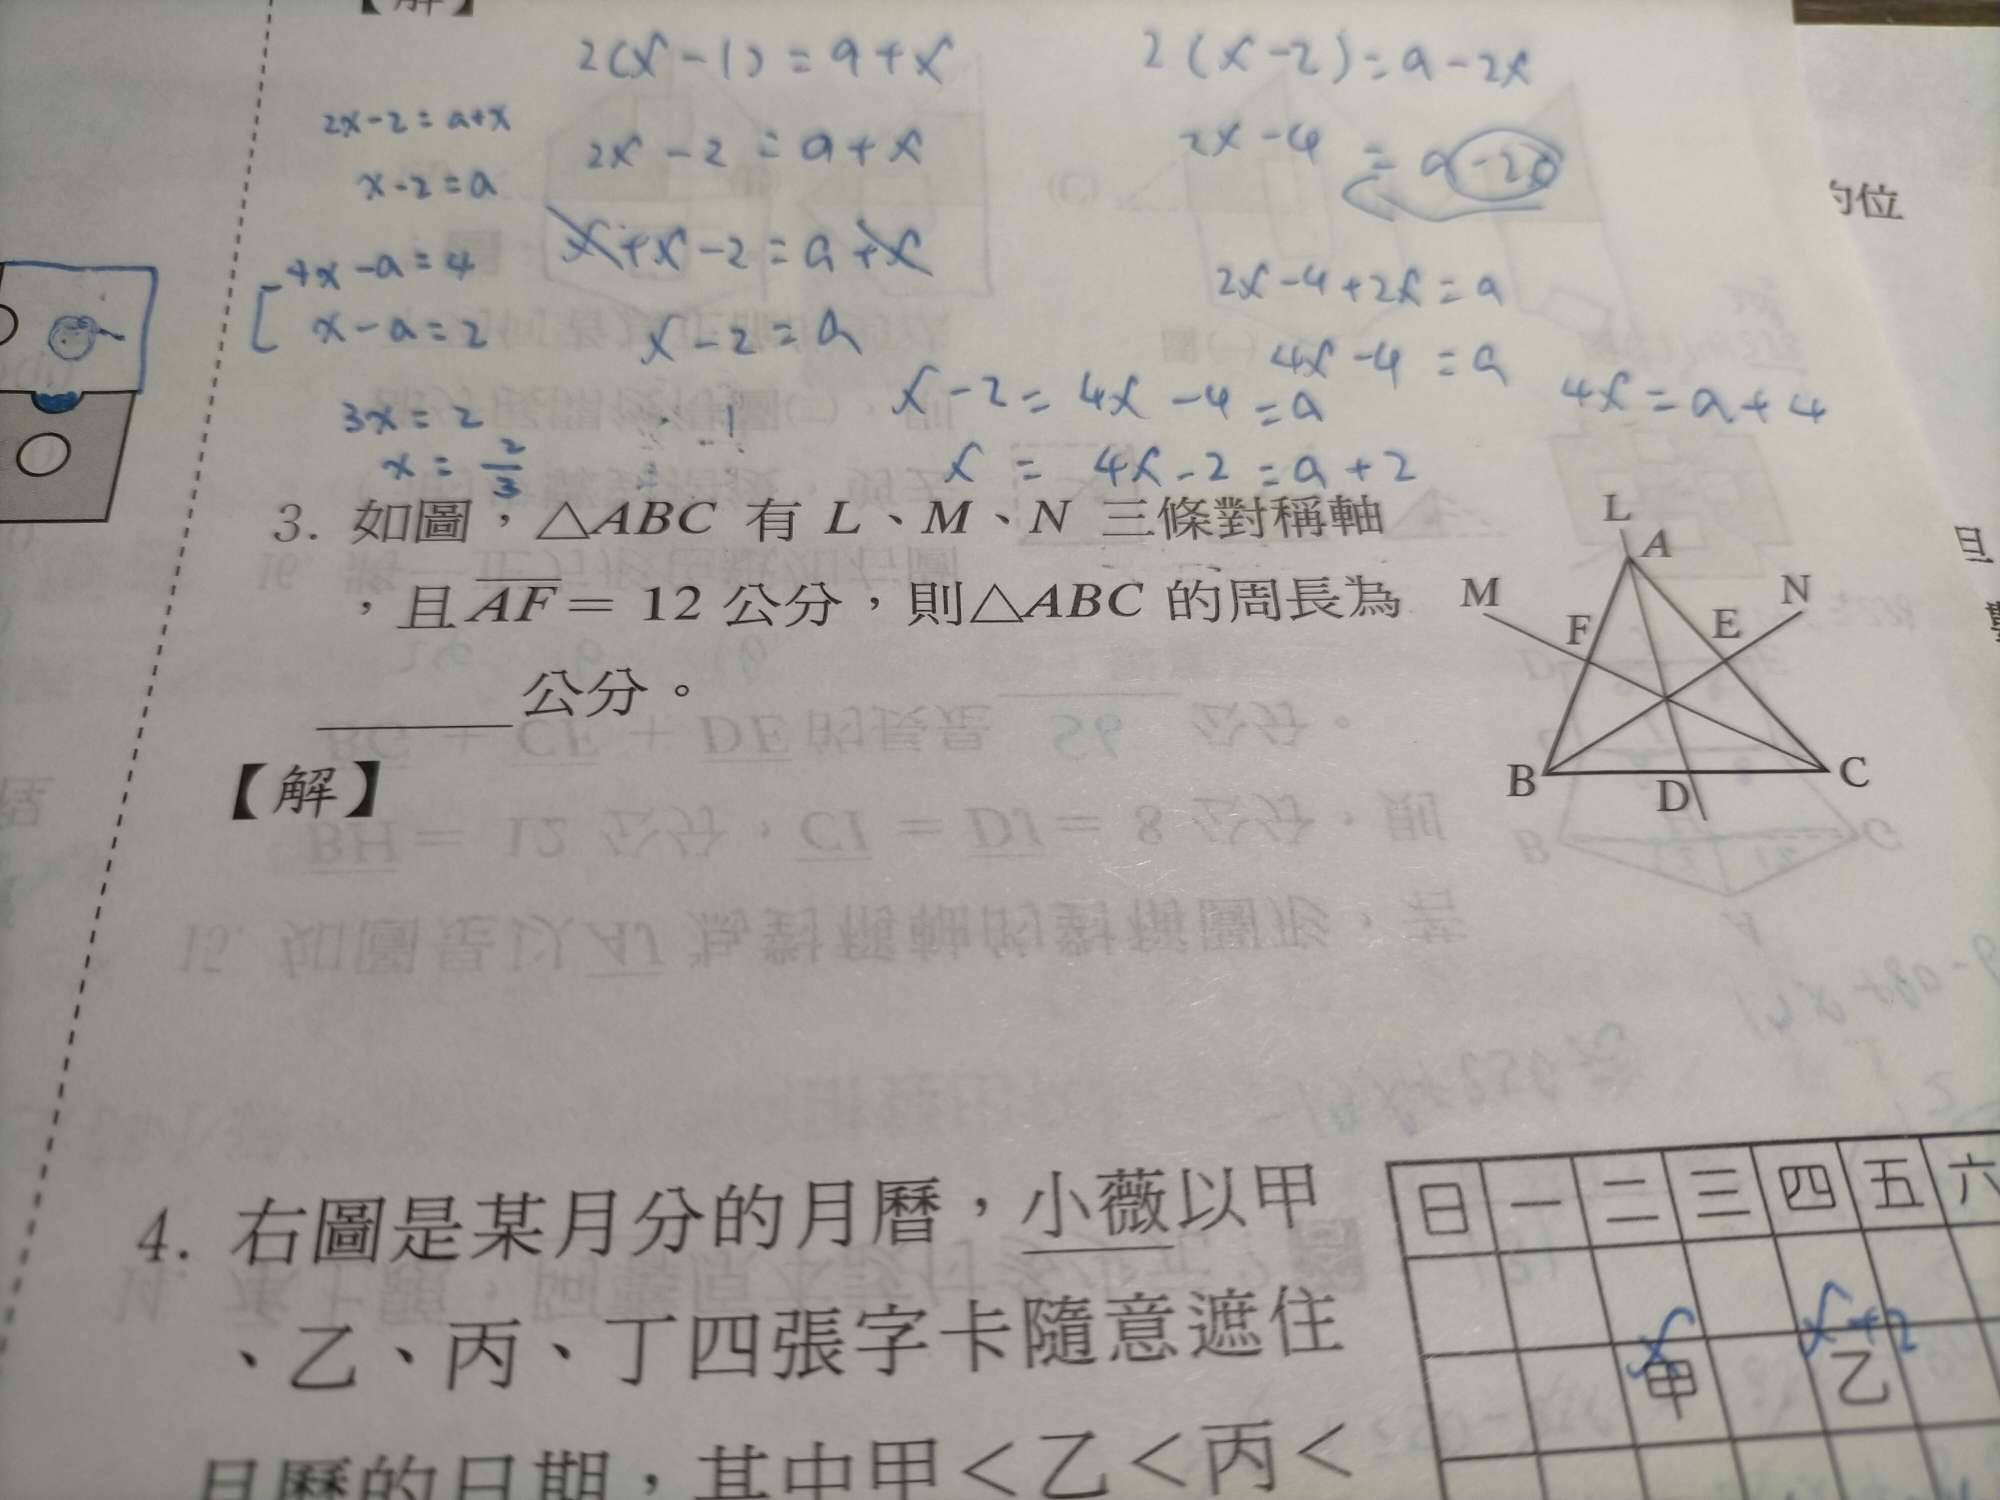 【解】
2(x-1)=a+x
2(x-2)=a-2x
2x-2=a+x
2x-2=a+x
2x-4=a-2x
x-2=a
x+x-2=a+x
4x-a=4
2x-4+2x=a
x-a=2
x-2=a
4x-4=a
3x=2
x-2=4x-4=a
4x=a+4
x=2/3
x=4x-2=a+2
的位
3. 如圖，△ABC 有 L、M、N 三條對稱軸
，且AF=12公分，則△ABC 的周長為
公分。
【解】
L
A
M
N
F
E
B
D
C
4. 右圖是某月分的月曆，小薇以甲
、乙、丙、丁四張字卡隨意遮住
月曆的日期，其中甲＜乙＜丙＜
日 一 二 三 四 五 六
x x+2
甲 乙